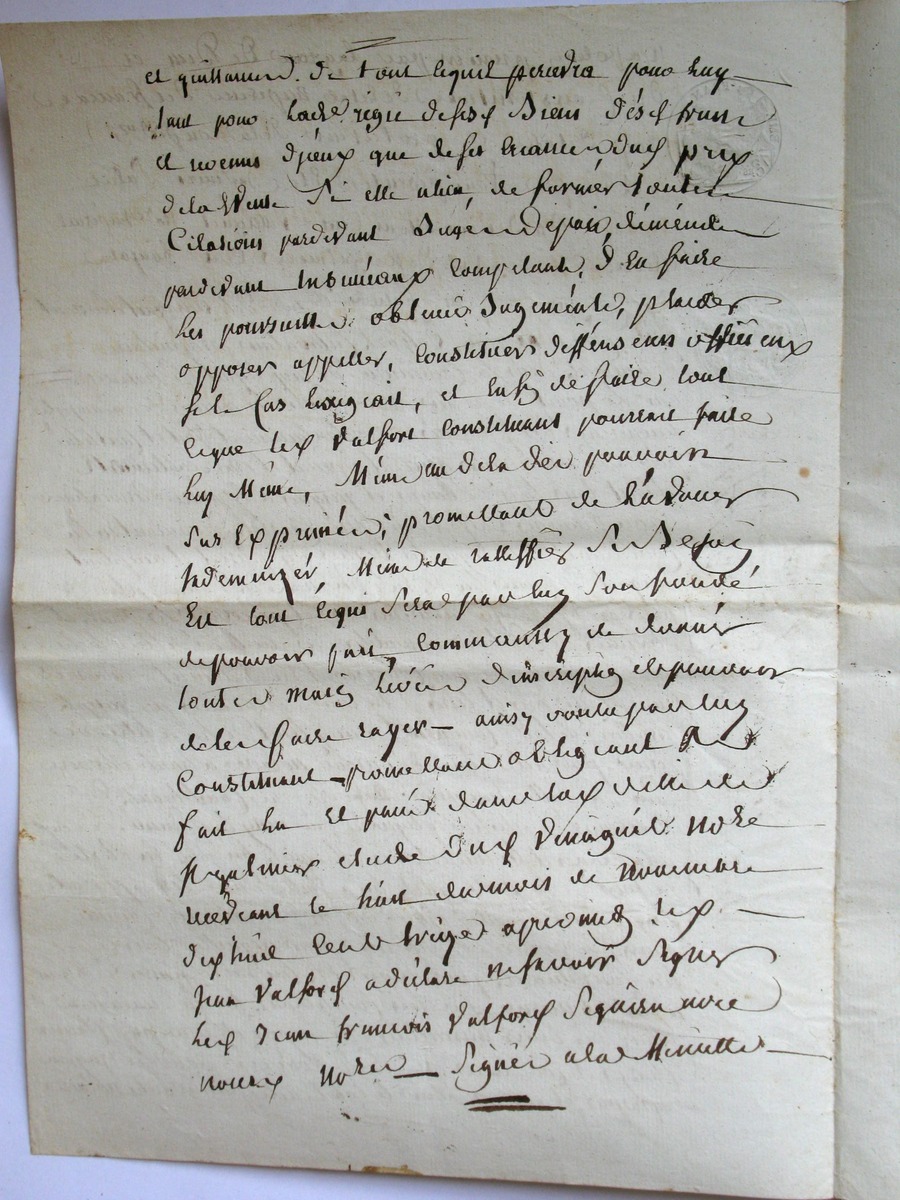 et quittancer de tout ce quil prendra pour luy
tant pour la régie de ses biens des fruits
et revenus d'jceux que de ses créances du prix
de la vente si elle a lieu, de former toutes
Citations pardevant Juge de paix, même
pardevant tribunaux Competants, d'en faire
les poursuittes obtenir Jugements, plaider
opposer appeller, Constituer deffenseurs officieux
si le Cas l'exigeait, et enfin de faire tout
ce que led Valfort Constituant pourrait faire
luy Même, Même au dela des pouvoirs
Sus Exprimés, promettant de l'avouer
Jndemnizer, Même de rattiffier si besoin
Est tout ce qui sera par luy son fondé
de pouvoir fait, de donner
toutes main levées d'inscriptions et pouvoir
de les faire rayer — ainsy voulu par luy
Constituant — promettant obligeant &
fait lu et passé dans lad ville de
St galmier étude dud Notre
recevant le huit du mois de Novembre
dix huit cents treize apres midy led —
Jean Valfort a déclaré ne savoir signer
led Jean françois Valfort
nousd Notre — Signés a la Minutte —